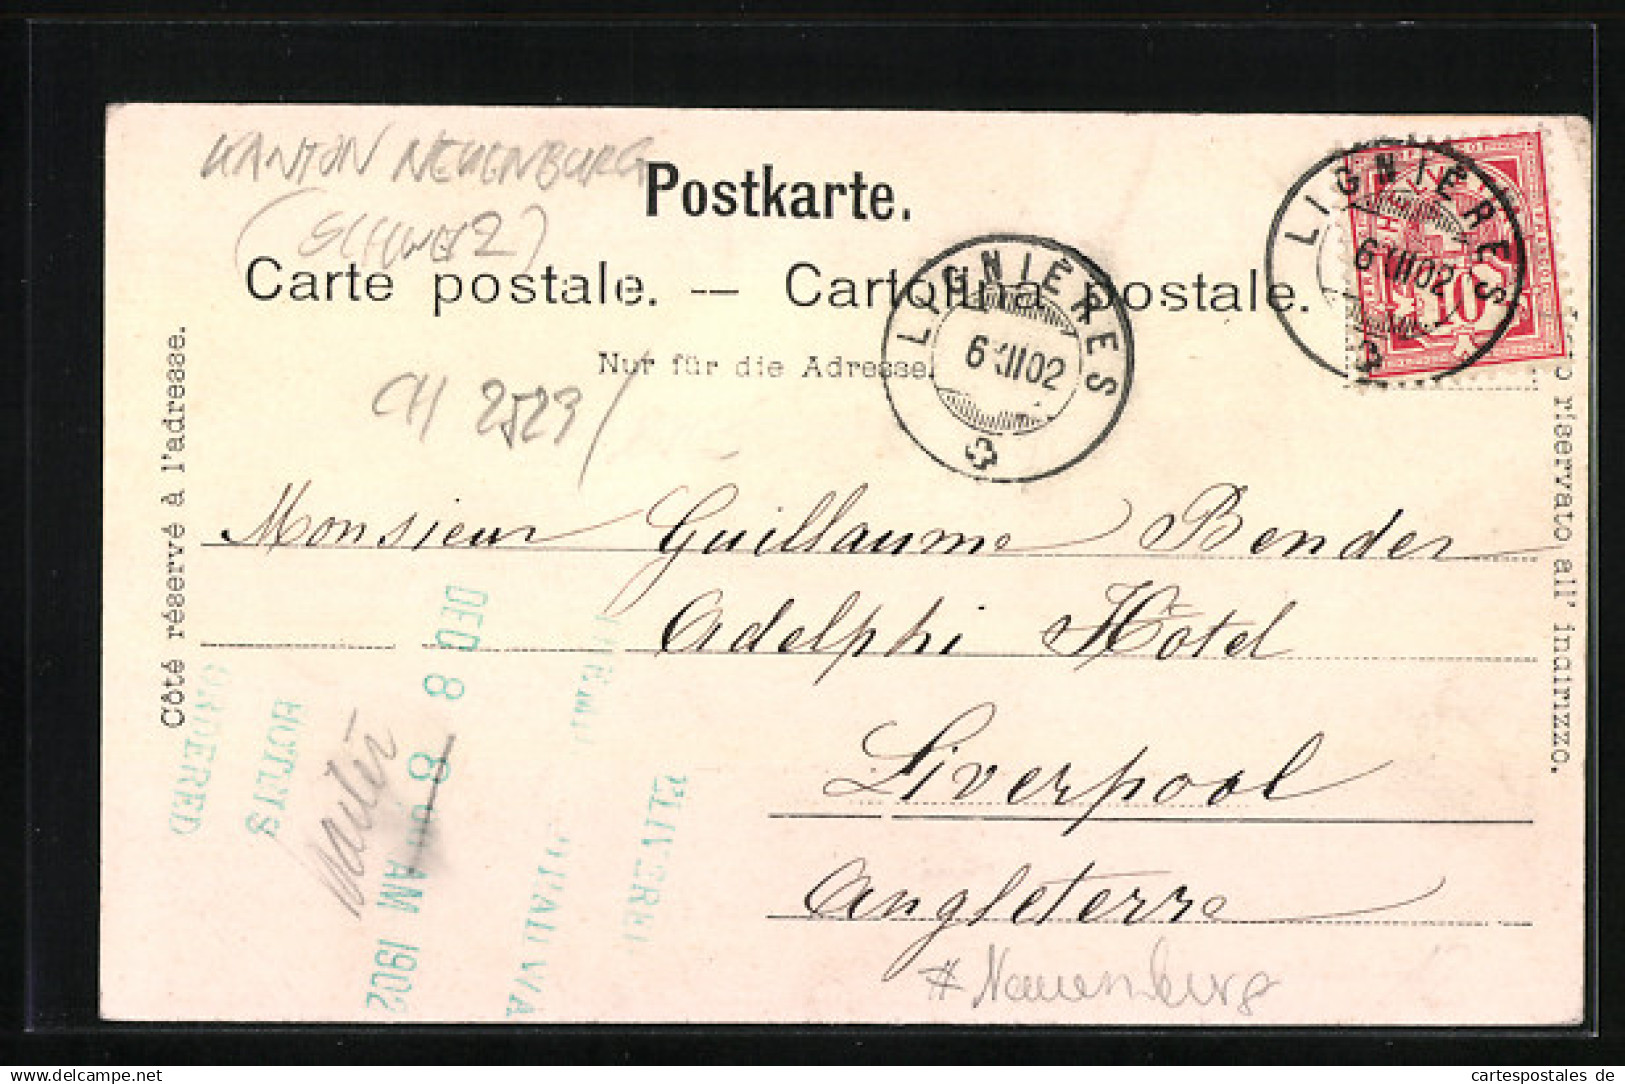 KANTON NEUENBURG
(SCHWEIZ)
Postkarte.
Carte postale. — Cartolina postale.
Nur für die Adresse.
CH 2523/
LIGNIÈRES
6 XII 02
LIGNIÈRES
6 XII 02
10
Côté réservé à l'adresse.
riservato all' indirizzo.
Monsieur Guillaume Bender
Adelphi Hôtel
Liverpool
Angleterre
DEC 8
8 AM 1902
ORDERED
# Nauenburg
www.delcampe.net
cartespostales de